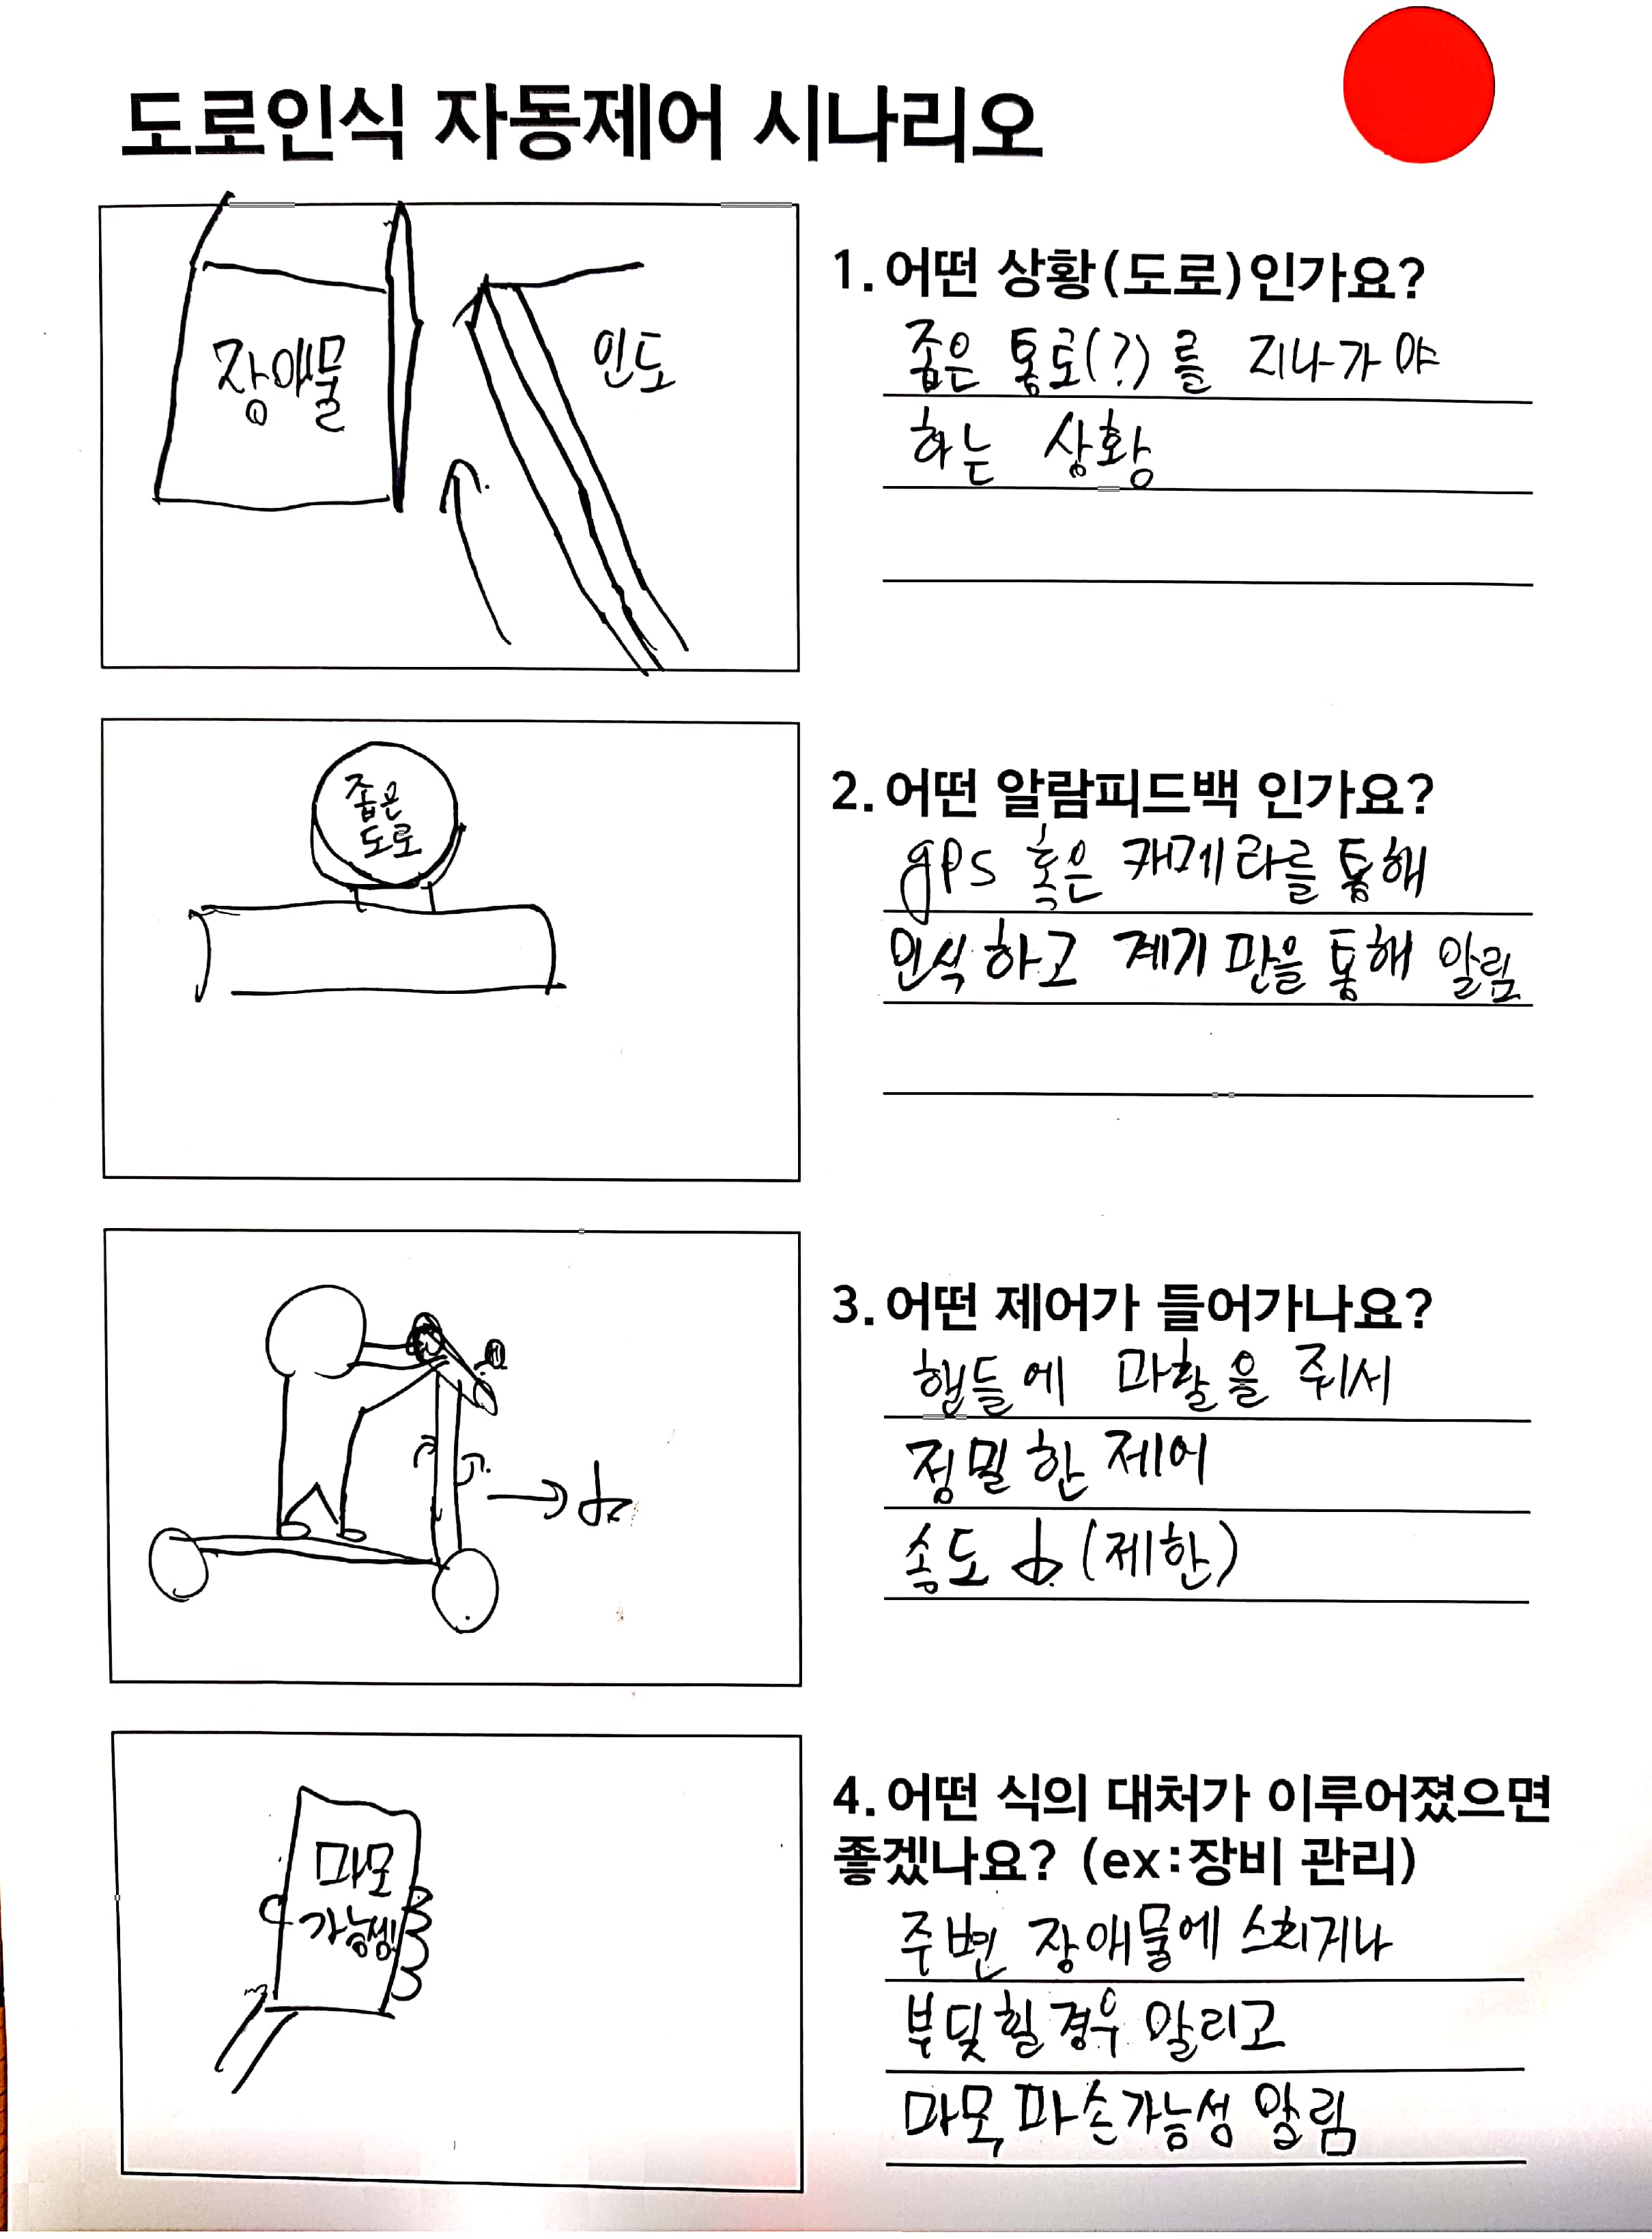 도로인식 자동제어 시나리오
장애물
인도
1. 어떤 상황(도로)인가요?
좁은 통로(?)를 지나가야
하는 상황
좁은
도로
2. 어떤 알람피드백 인가요?
gps 혹은 카메라를 통해
인식하고 계기판을 통해 알림
3. 어떤 제어가 들어가나요?
핸들에 마찰을 줘서
정밀한 제어
속도 ↓ (제한)
4. 어떤 식의 대처가 이루어졌으면
좋겠나요? (ex:장비 관리)
마모
가능성!
주변 장애물에 스치거나
부딪힐 경우 알리고
마모, 파손가능성 알림